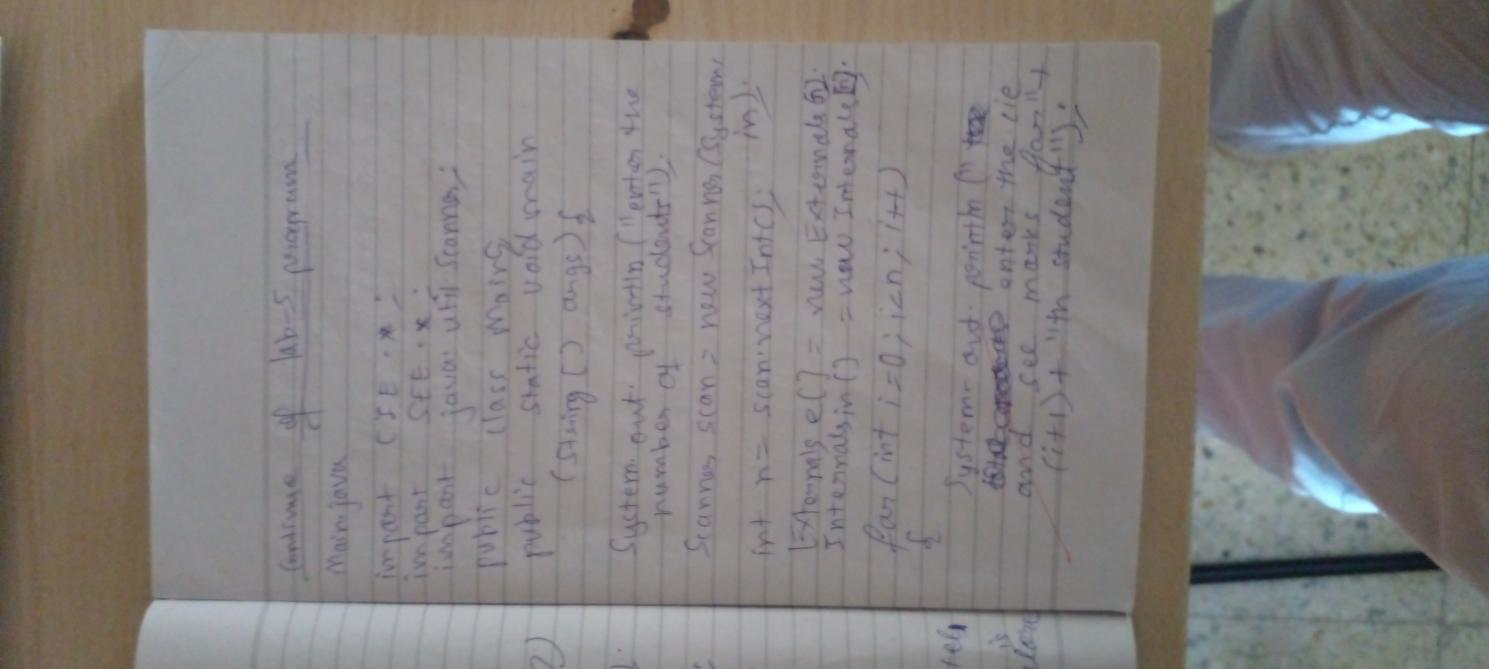 continue of lab-5 program
Main.java
import CIE.*;
import SEE.*;
import java.util.Scanner;
public class Main{
public static void main
(String [] args) {
System.out.println ("enter the
number of students");
Scanner scan = new Scanner (System.
in);
int n = scan.nextInt();
Externals e[] = new Externals[n];
Internals in[] = new Internals[n];
for (int i=0; i<n; i++)
{
System.out.println ("
enter the cie
and see marks for" +
(i+1) + "th student");